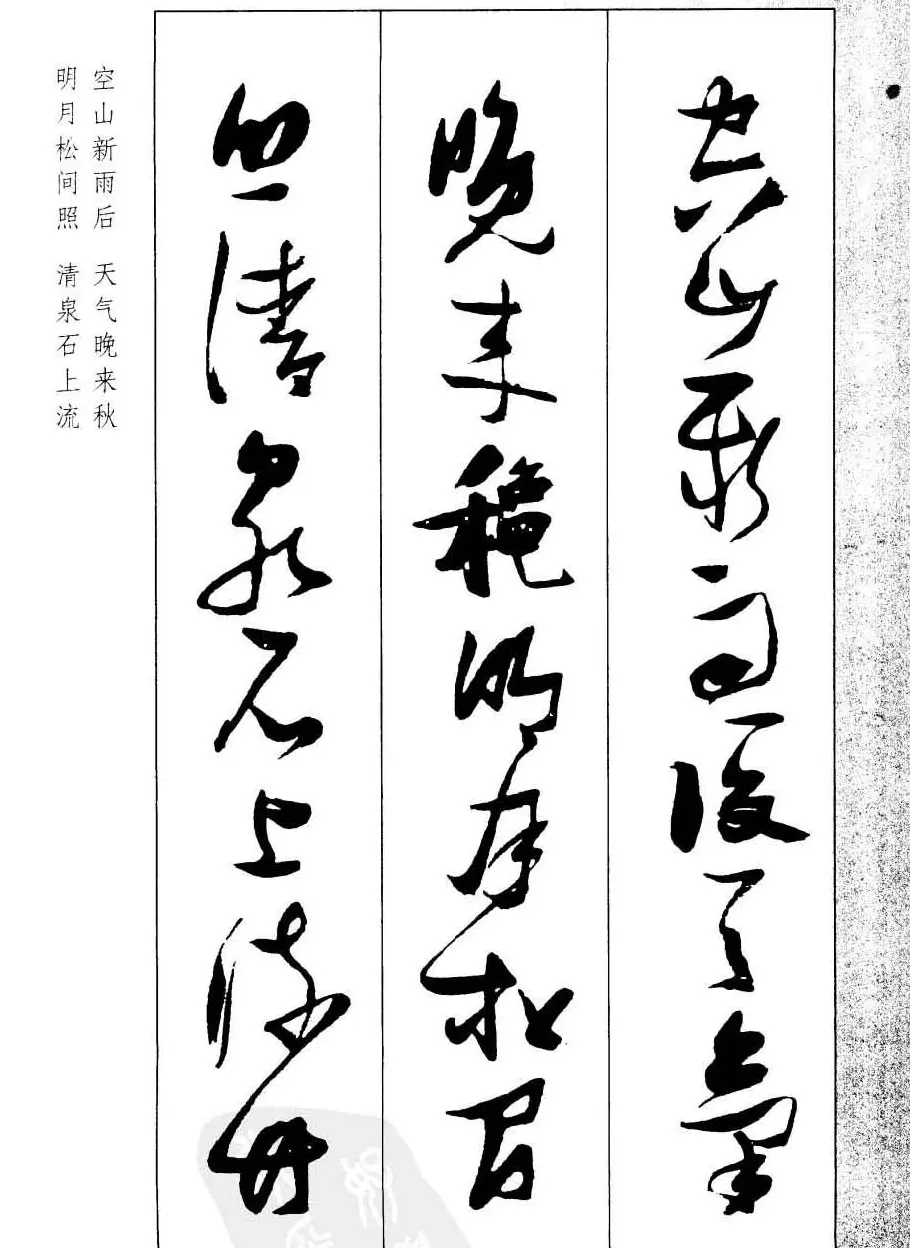 空山新雨後天氣
晚来穐明月松間
照清泉石上流竹
空山新雨后 天气晚来秋
明月松间照 清泉石上流